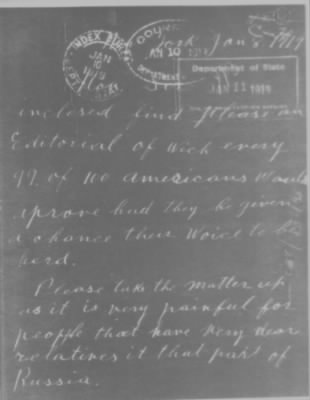 INDEX BUREAU
JAN
10
1919
JAN 10 191
DEPARTMENT
York Jan 8 1919
Department of State
JAN 11 1919
inclosed find please an
Editorial of wich every
99 of 100 americans would
aprove had they be given
a chance their Woice to be
herd.
Please take the matter up
as it is very painful for
people that have Very near
relatives it that part of
Russia.